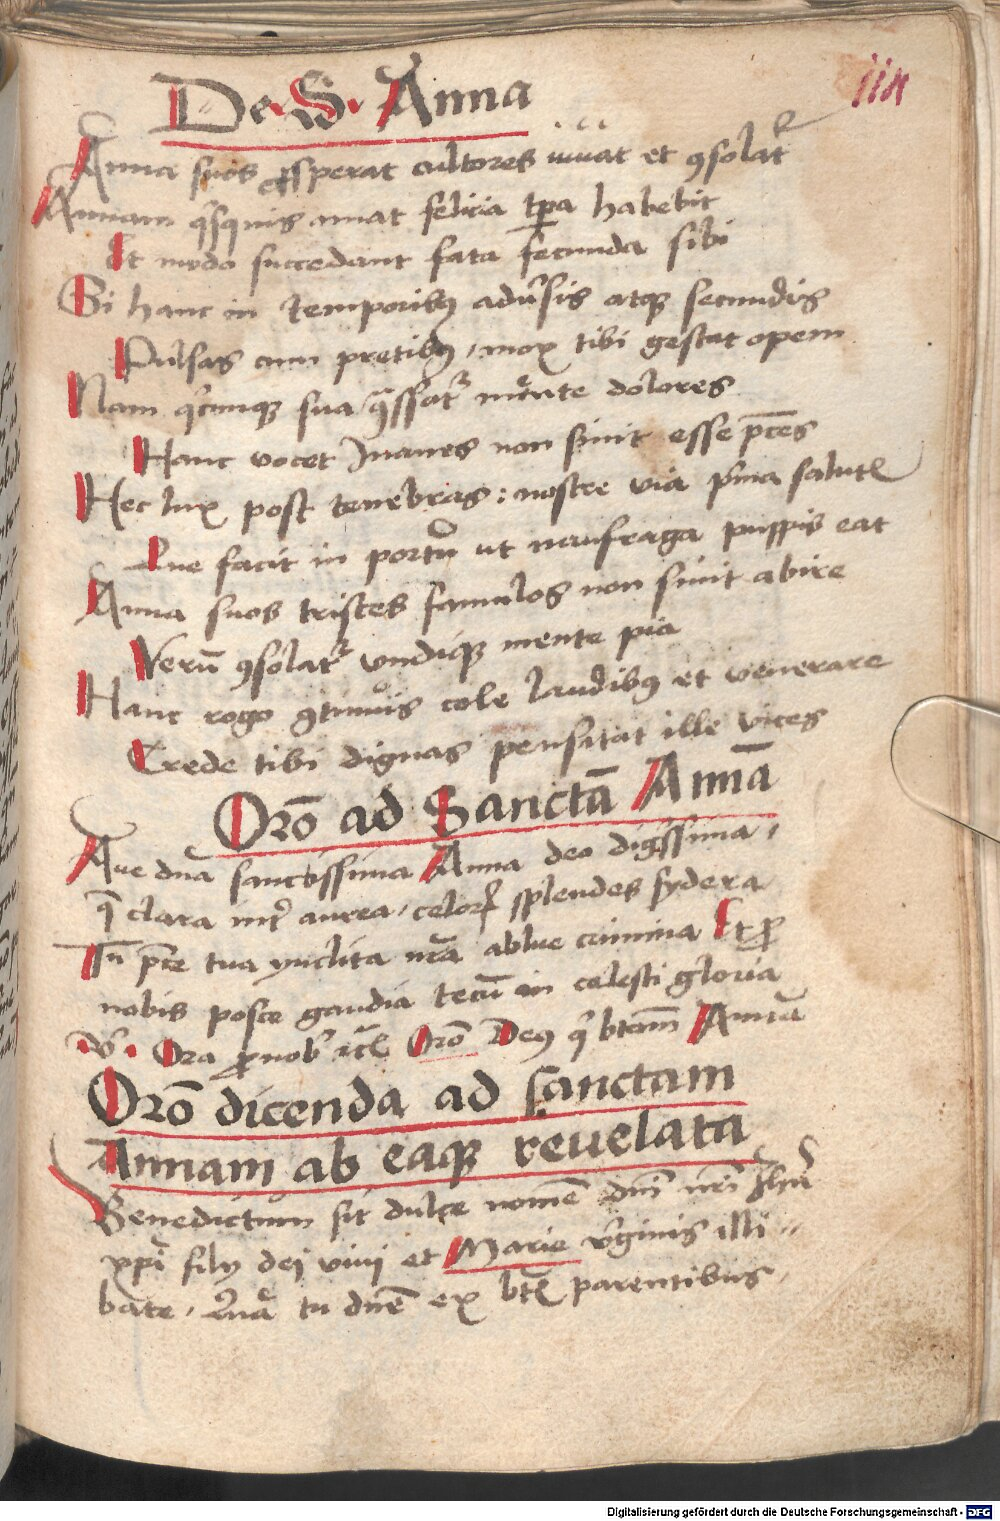 De S. Anna
Anna suos ꝓsperat cultores iuuat et ꝯsolatᷣ
Annam qͥsquis amat felicia tꝑa habebit
Et modo succedant fata secunda sibi
Si hanc in temporibꝰ aduͤsis atqꝫ secundis
Pulsas cum precibꝰ, mox tibi gestat opem
Nam qͥcunqꝫ sua mͤnte dolores
Hanc vocet Inanes non sinit esse pͨces
Hec lux post tenebras : nostre via pͥma salutꝭ
Que facit in portū ut naufraga puppis eat
Anna suos tristes famulos non sinit abire
Verū ꝯsolatᷣ vndiqꝫ mente pia
Hanc rogo ꝯtinuis cole laudibꝰ et venerare
Crede tibi dignas pensitat ille vices
Orō ad Sanctā Annā
Aue dn̄a sanctissima Anna deo digissima,
q̄ clara int̓ aurea, celorꝝ splendes sydera
Tu pͨce tua ynclita nr̄a ablue crimina Et ꝓ
nobis posce gaudia tecū in celesti gloria
V̓. Ora ꝓ nob̓ Orō Deꝰ qͥ btām Annā
Orō dicenda ad sanctam
Annam ab eaqꝫ reuelata
Benedictum sit dulce nomē dnī nr̄i Ihū
xp̄i filij dei viui et Marie vͥginis illi
bate, tu dnē ex btꝭ parentibus,